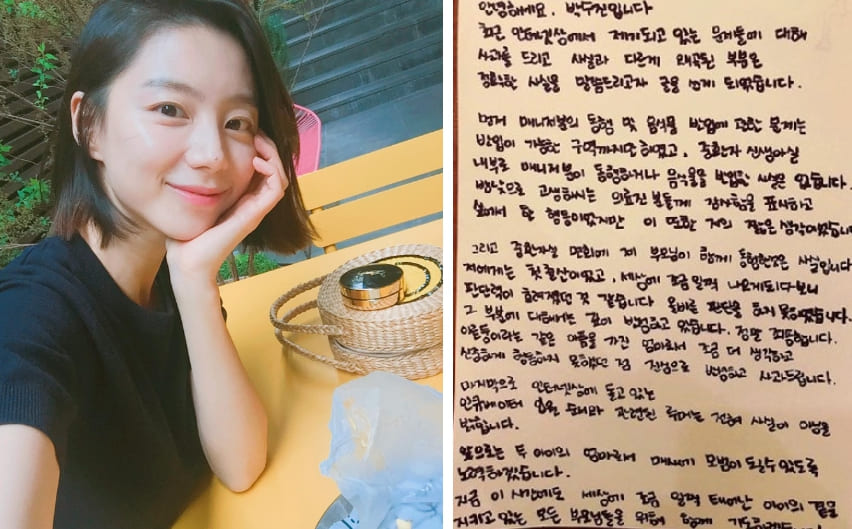 안녕하세요. 박수진입니다
최근 인터넷상에서 제기되고 있는 문제들에 대해
사과를 드리고 사실과 다르게 왜곡된 부분은
정확한 사실을 말씀드리고자 글을 쓰게 되었습니다.
먼저 매니저분의 동행 및 음식물 반입에 관한 문제는
반입이 가능한 구역까지만 하였고, 중환자 신생아실
내부로 매니저분이 동행하거나 음식물을 반입한 사실은 없습니다.
밤낮으로 고생하시는 의료진 분들께 감사함을 표시하고
싶어서 한 행동이었지만 이 또한 저의 짧은 생각이었습니
그리고 중환자실 면회에 제 부모님이 함께 동행한것은 사실입니다
저에게는 첫 출산이었고, 세상에 조금 일찍 나오게되다보니
판단력이 흐려졌던 것 같습니다 올바른 판단을 하지 못하였습니다.
그 부분에 대해서는 깊이 반성하고 있습니다. 정말 죄송합니다.
이른둥이라는 같은 아픔을 가진 엄마로서 조금 더 생각하고
신중하게 행동하지 못했던 점 진심으로 반성하고 사과드립니다.
마지막으로 인터넷상에 돌고 있는
인큐베이터 입원 순서와 관련된 루머는 전혀 사실이 아님을
밝힙니다.
앞으로는 두 아이의 엄마로서 매사에 모범이 될수 있도록
노력하겠습니다.
지금 이 시간에도 세상에 조금 일찍 태어난 아이의 곁을
지키고 있는 모든 부모님들을 위해